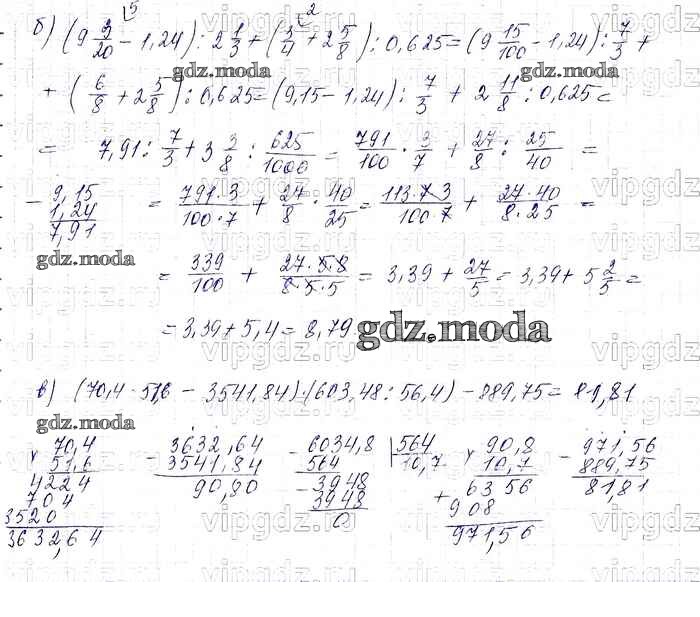 б) (9 3/20 - 1,24) : 2 1/3 + (3/4 + 2 5/8) : 0,625 = (9 15/100 - 1,24) : 7/3 +
+ (6/8 + 2 5/8) : 0,625 = (9,15 - 1,24) : 7/3 + 2 11/8 : 0,625 =
= 7,91 : 7/3 + 3 3/8 : 625/1000 = 791/100 · 3/7 + 27/8 : 25/40 =
- 9,15
1,24
7,91
= 791·3/100·7 + 27/8 · 40/25 = 113·7·3/100·7 + 27·40/8·25 =
gdz.moda
= 339/100 + 27·5·8/8·5·5 = 3,39 + 27/5 = 3,39 + 5 2/5 =
= 3,39 + 5,4 = 8,79
gdz.moda
в) (70,4 · 51,6 - 3541,84) · (603,48 : 56,4) - 889,75 = 81,81
gdz.moda
× 70,4
51,6
4224
704
3520
3632,64
- 3632,64
3541,84
90,80
- 6034,8 | 564
564 | 10,7
- 3948
3948
0
× 90,8
10,7
+ 6356
908
971,56
- 971,56
889,75
81,81